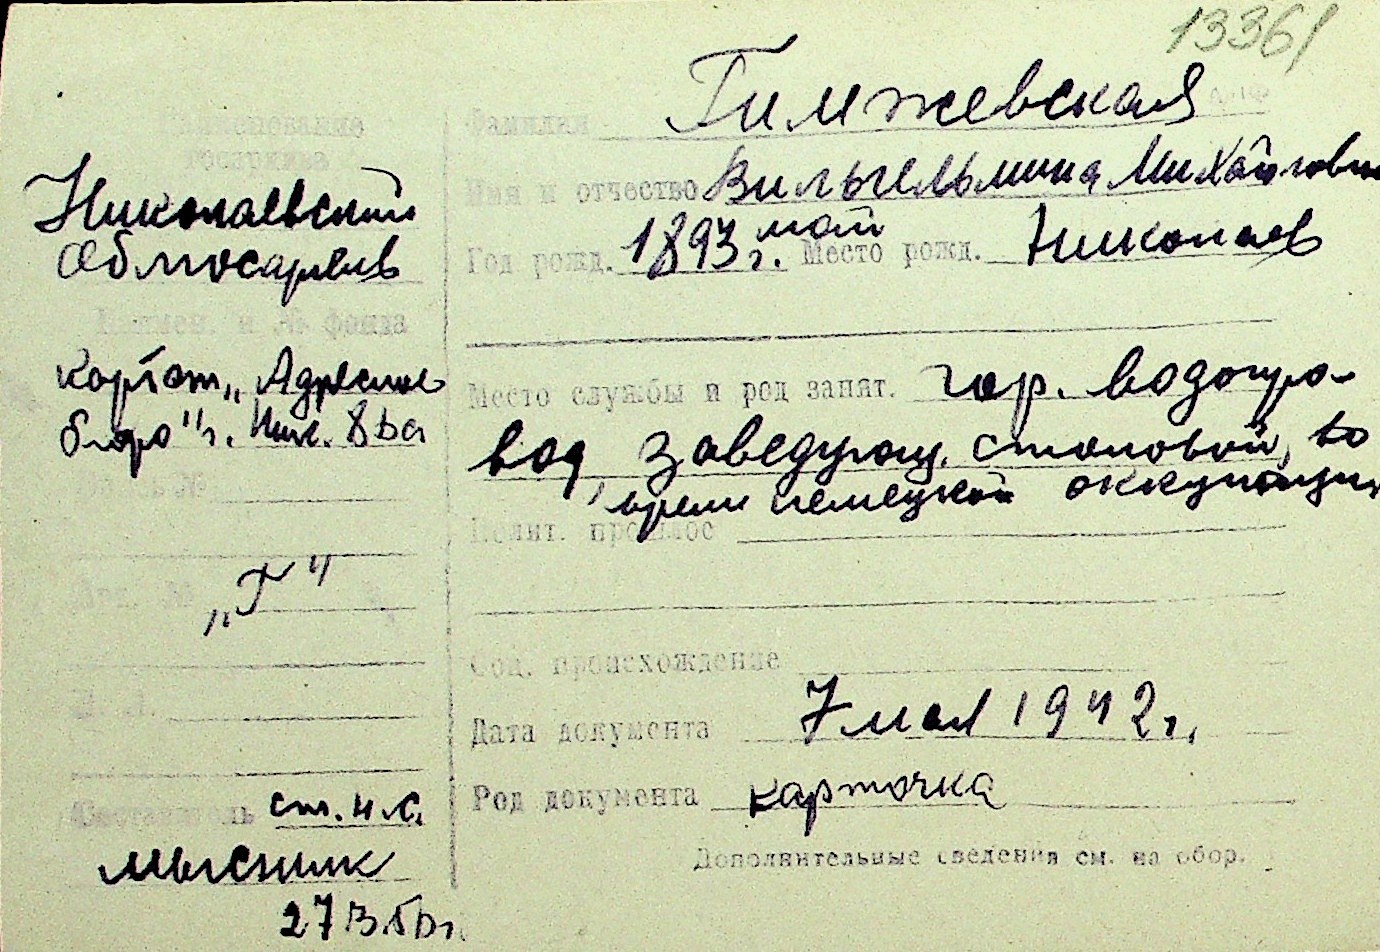 13361
Наименование
госархива
Николаевский
Облгосархив
Наимен. и № фонда
Картот. „Адресное
бюро" г. Ник.
Опись №
Арх. №
„Г"
Составитель ст. н. с.
Мысник
Фамилия Гимжевская
Имя и отчество Вильгельмина Михайловна
Год рожд. 1893 г. май Место рожд. Николаев
Место службы и род занят. гор. водопро-
вод, заведующ. столовой, во
время немецкой оккупации
Полит. прошлое
Соц. происхождение
Дата документа 7 мая 1942 г.
Род документа карточка
Дополнительные сведения см. на обор.